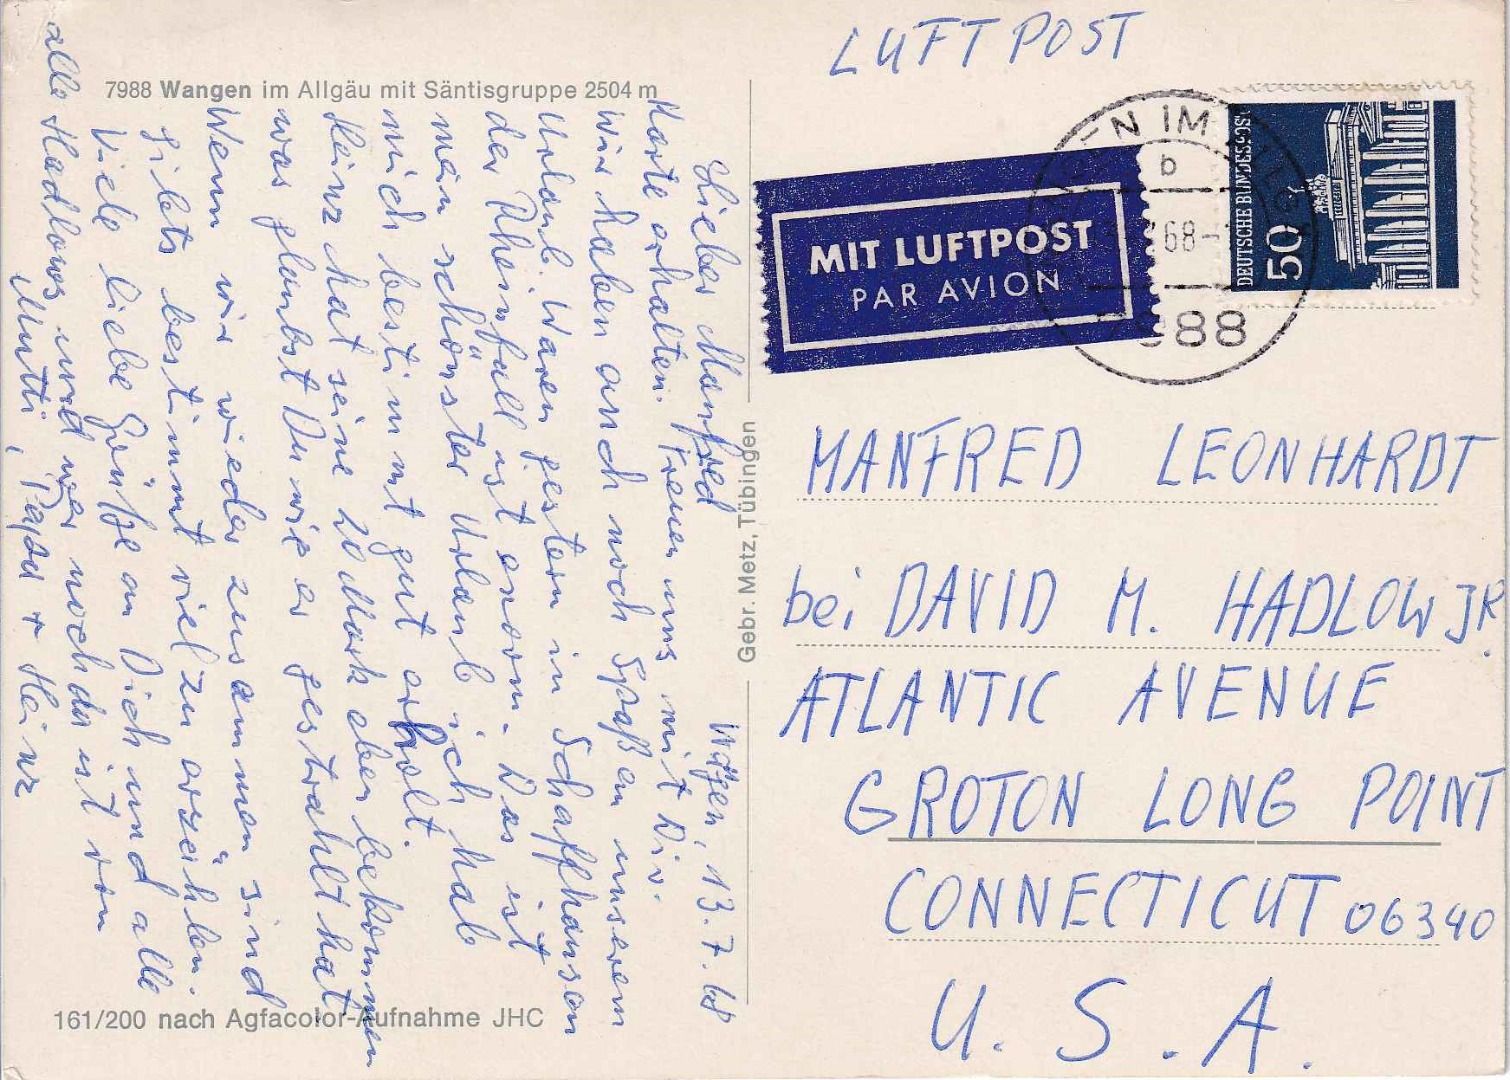 7988 Wangen im Allgäu mit Säntisgruppe 2504 m
Wangen, 13.7.68
Lieber Manfred
Karte erhalten. Freuen uns mit Dir.
Wir haben auch noch Spaß an unserem
Urlaub. Waren gestern in Schaffhausen
der Rheinfall ist enorm. Das ist
mein schönster Urlaub ich hab
mich bestimmt gut erholt.
Heinz hat seine 20 Mark eben bekommen
was glaubst Du wie er gestrahlt hat.
Wenn wir wieder zusammen sind
gibts bestimmt viel zu erzählen.
Viele liebe Grüße an Dich und alle
alle Hadlows und wer noch da ist von
Mutti, Papa + Heinz
161/200 nach Agfacolor-Aufnahme JHC
Gebr. Metz, Tübingen
LUFTPOST
MIT LUFTPOST
PAR AVION
IM
b
68
988
DEUTSCHE BUNDESPOST
50
MANFRED LEONHARDT
bei DAVID M. HADLOW JR.
ATLANTIC AVENUE
GROTON LONG POINT
CONNECTICUT 06340
U.S.A.